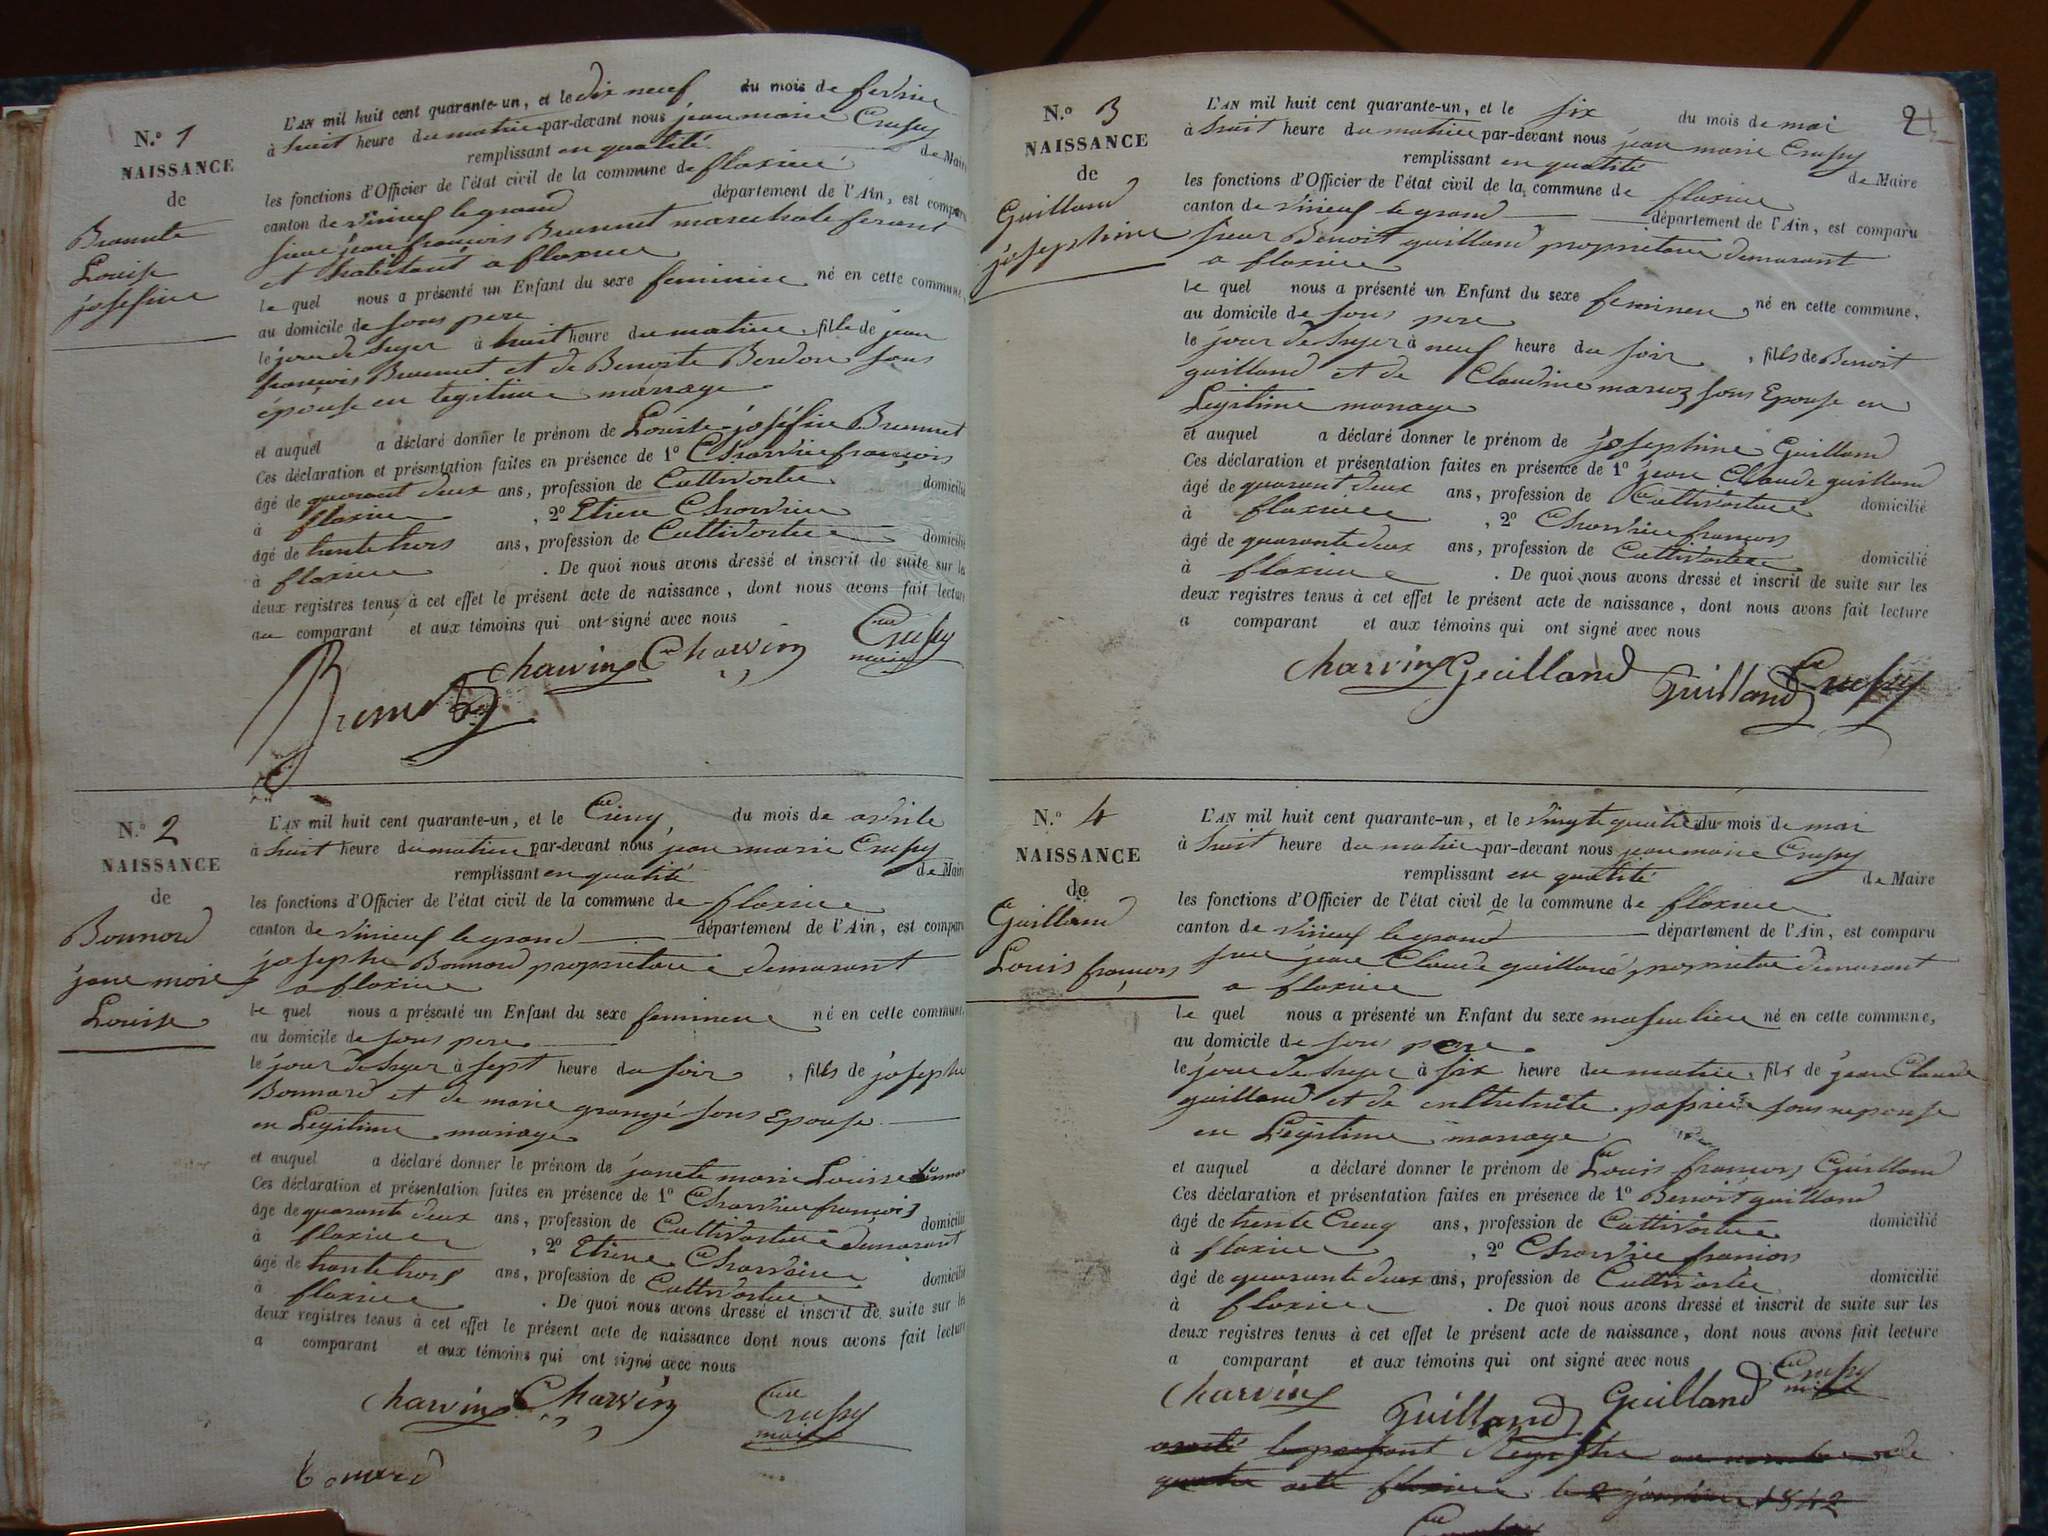 N.º 1
NAISSANCE
de
Brunute
Louise
josefine
L'AN mil huit cent quarante-un, et le dix neuf du mois de fevrie
à huit heure du matin par-devant nous jean marie Crussy
remplissant en qualité de Maire
les fonctions d'Officier de l'état civil de la commune de flaxieu
canton de virieu le grand département de l'Ain, est comparu
sieur jean françois Brunnet marechale ferant
et habitant a flaxieu
le quel nous a présenté un Enfant du sexe feminin né en cette commune,
au domicile de sons pere
le jour de hyer à huit heure du matin, fille de jean
françois Brunnet et de Benoite Berdon sons
épouse en legitime mariage
et auquel a déclaré donner le prénom de Louise joséfine Brunnet
Ces déclaration et présentation faites en présence de 1º Charvin françois
âgé de quarant deux ans, profession de Cultivateur domicilié
à flaxieu, 2º Etiene Charvin
âgé de trente trois ans, profession de Cultivateur domicilié
à flaxieu. De quoi nous avons dressé et inscrit de suite sur les
deux registres tenus à cet effet le présent acte de naissance, dont nous avons fait lecture
au comparant et aux témoins qui ont signé avec nous
Charvin Charvin Crussy
maire
Brunet
N.º 2
NAISSANCE
de
Bonnard
jane marie
Louise
L'AN mil huit cent quarante-un, et le Cinq du mois de avrile
à huit heure du matin par-devant nous jean marie Crussy
remplissant en qualité de Maire
les fonctions d'Officier de l'état civil de la commune de flaxieu
canton de virieu le grand département de l'Ain, est comparu
josephe Bonnard propriétaire demurant
a flaxieu
le quel nous a présenté un Enfant du sexe feminin né en cette commune,
au domicile de sons pere
le jour de hyer à sept heure du soir, fille de josephe
Bonnard et de marie grangé sons Epouse
en Legitime mariage
et auquel a déclaré donner le prénom de janete marie Louise Bonnar
Ces déclaration et présentation faites en présence de 1º Charvin françois
âgé de quarante deux ans, profession de Cultivateur demurant domicilié
à flaxieu, 2º Etiene Charvin
âgé de trente trois ans, profession de Cultivateur domicilié
à flaxieu. De quoi nous avons dressé et inscrit de suite sur les
deux registres tenus à cet effet le présent acte de naissance dont nous avons fait lecture
a comparant et aux témoins qui ont signé avec nous
Charvin Charvin Crussy
maire
bonard
2
N.º 3
NAISSANCE
de
Guilland
josephine
L'AN mil huit cent quarante-un, et le six du mois de mai
à huit heure du matin par-devant nous jean marie Crussy
remplissant en qualité de Maire
les fonctions d'Officier de l'état civil de la commune de flaxieu
canton de virieu le grand département de l'Ain, est comparu
sieur Benoit guilland propriétaire demurant
a flaxieu
le quel nous a présenté un Enfant du sexe feminin né en cette commune,
au domicile de sons pere
le jour de hyer à neuf heure du soir, fille de Benoit
guilland et de Claudine marioz sons Epouse en
Legitime mariage
et auquel a déclaré donner le prénom de josephine Guilland
Ces déclaration et présentation faites en présence de 1º jean Claude guilland
âgé de quarant deux ans, profession de Cultivateur domicilié
à flaxieu, 2º Charvin françois
âgé de quarante deux ans, profession de Cultivateur domicilié
à flaxieu. De quoi nous avons dressé et inscrit de suite sur les
deux registres tenus à cet effet le présent acte de naissance, dont nous avons fait lecture
a comparant et aux témoins qui ont signé avec nous
Charvin Guilland Guilland Crussy
N.º 4
NAISSANCE
de
Guilland
Louis françois
L'AN mil huit cent quarante-un, et le vingte quatre du mois de mai
à huit heure du matin par-devant nous jean marie Crussy
remplissant en qualité de Maire
les fonctions d'Officier de l'état civil de la commune de flaxieu
canton de virieu le grand département de l'Ain, est comparu
jean Claude guilland propriétaire demurant
a flaxieu
le quel nous a présenté un Enfant du sexe masculin né en cette commune,
au domicile de sons pere
le jour de hyer à six heure du matin, fils de jean Claude
guilland et de sons epouse
en Legitime mariage
et auquel a déclaré donner le prénom de Louis françois Guilland
Ces déclaration et présentation faites en présence de 1º Benoit guilland
âgé de trente Cinq ans, profession de Cultivateur domicilié
à flaxieu, 2º Charvin françois
âgé de quarante deux ans, profession de Cultivateur domicilié
à flaxieu. De quoi nous avons dressé et inscrit de suite sur les
deux registres tenus à cet effet le présent acte de naissance, dont nous avons fait lecture
a comparant et aux témoins qui ont signé avec nous
Charvin Guilland Guilland Crussy
maire
areté le present Registre au nombre de
quatre acte flaxieu le 2 janvier 1842